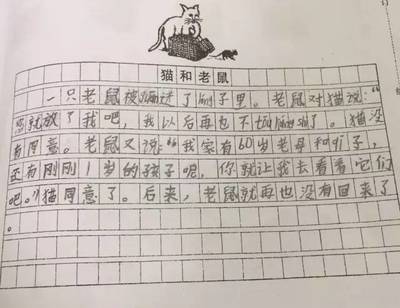 猫和老鼠
一只老鼠被骗进了lóng子里。老鼠对猫说:“
您就放了我吧,我以后再也不tōu liáng shi了。猫没
有同意。老鼠又说:“我家有60岁老母和妻子,
还有刚刚1岁的孩子呢,你就让我去看看它们
吧。”猫同意了。后来,老鼠就再也没有回来了
。